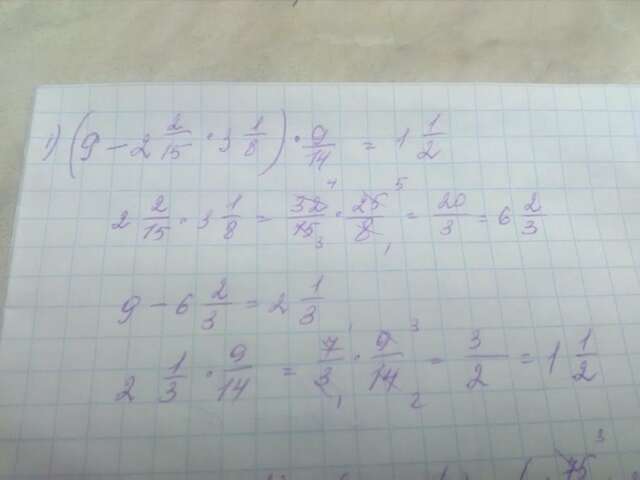 1) (9 - 2 2/15 · 3 1/8) · 9/14 = 1 1/2
2 2/15 · 3 1/8 = 32/15 4 3 · 25/8 5 1 = 20/3 = 6 2/3
9 - 6 2/3 = 2 1/3
2 1/3 · 9/14 = 7/3 1 1 · 9/14 3 2 = 3/2 = 1 1/2
75 3